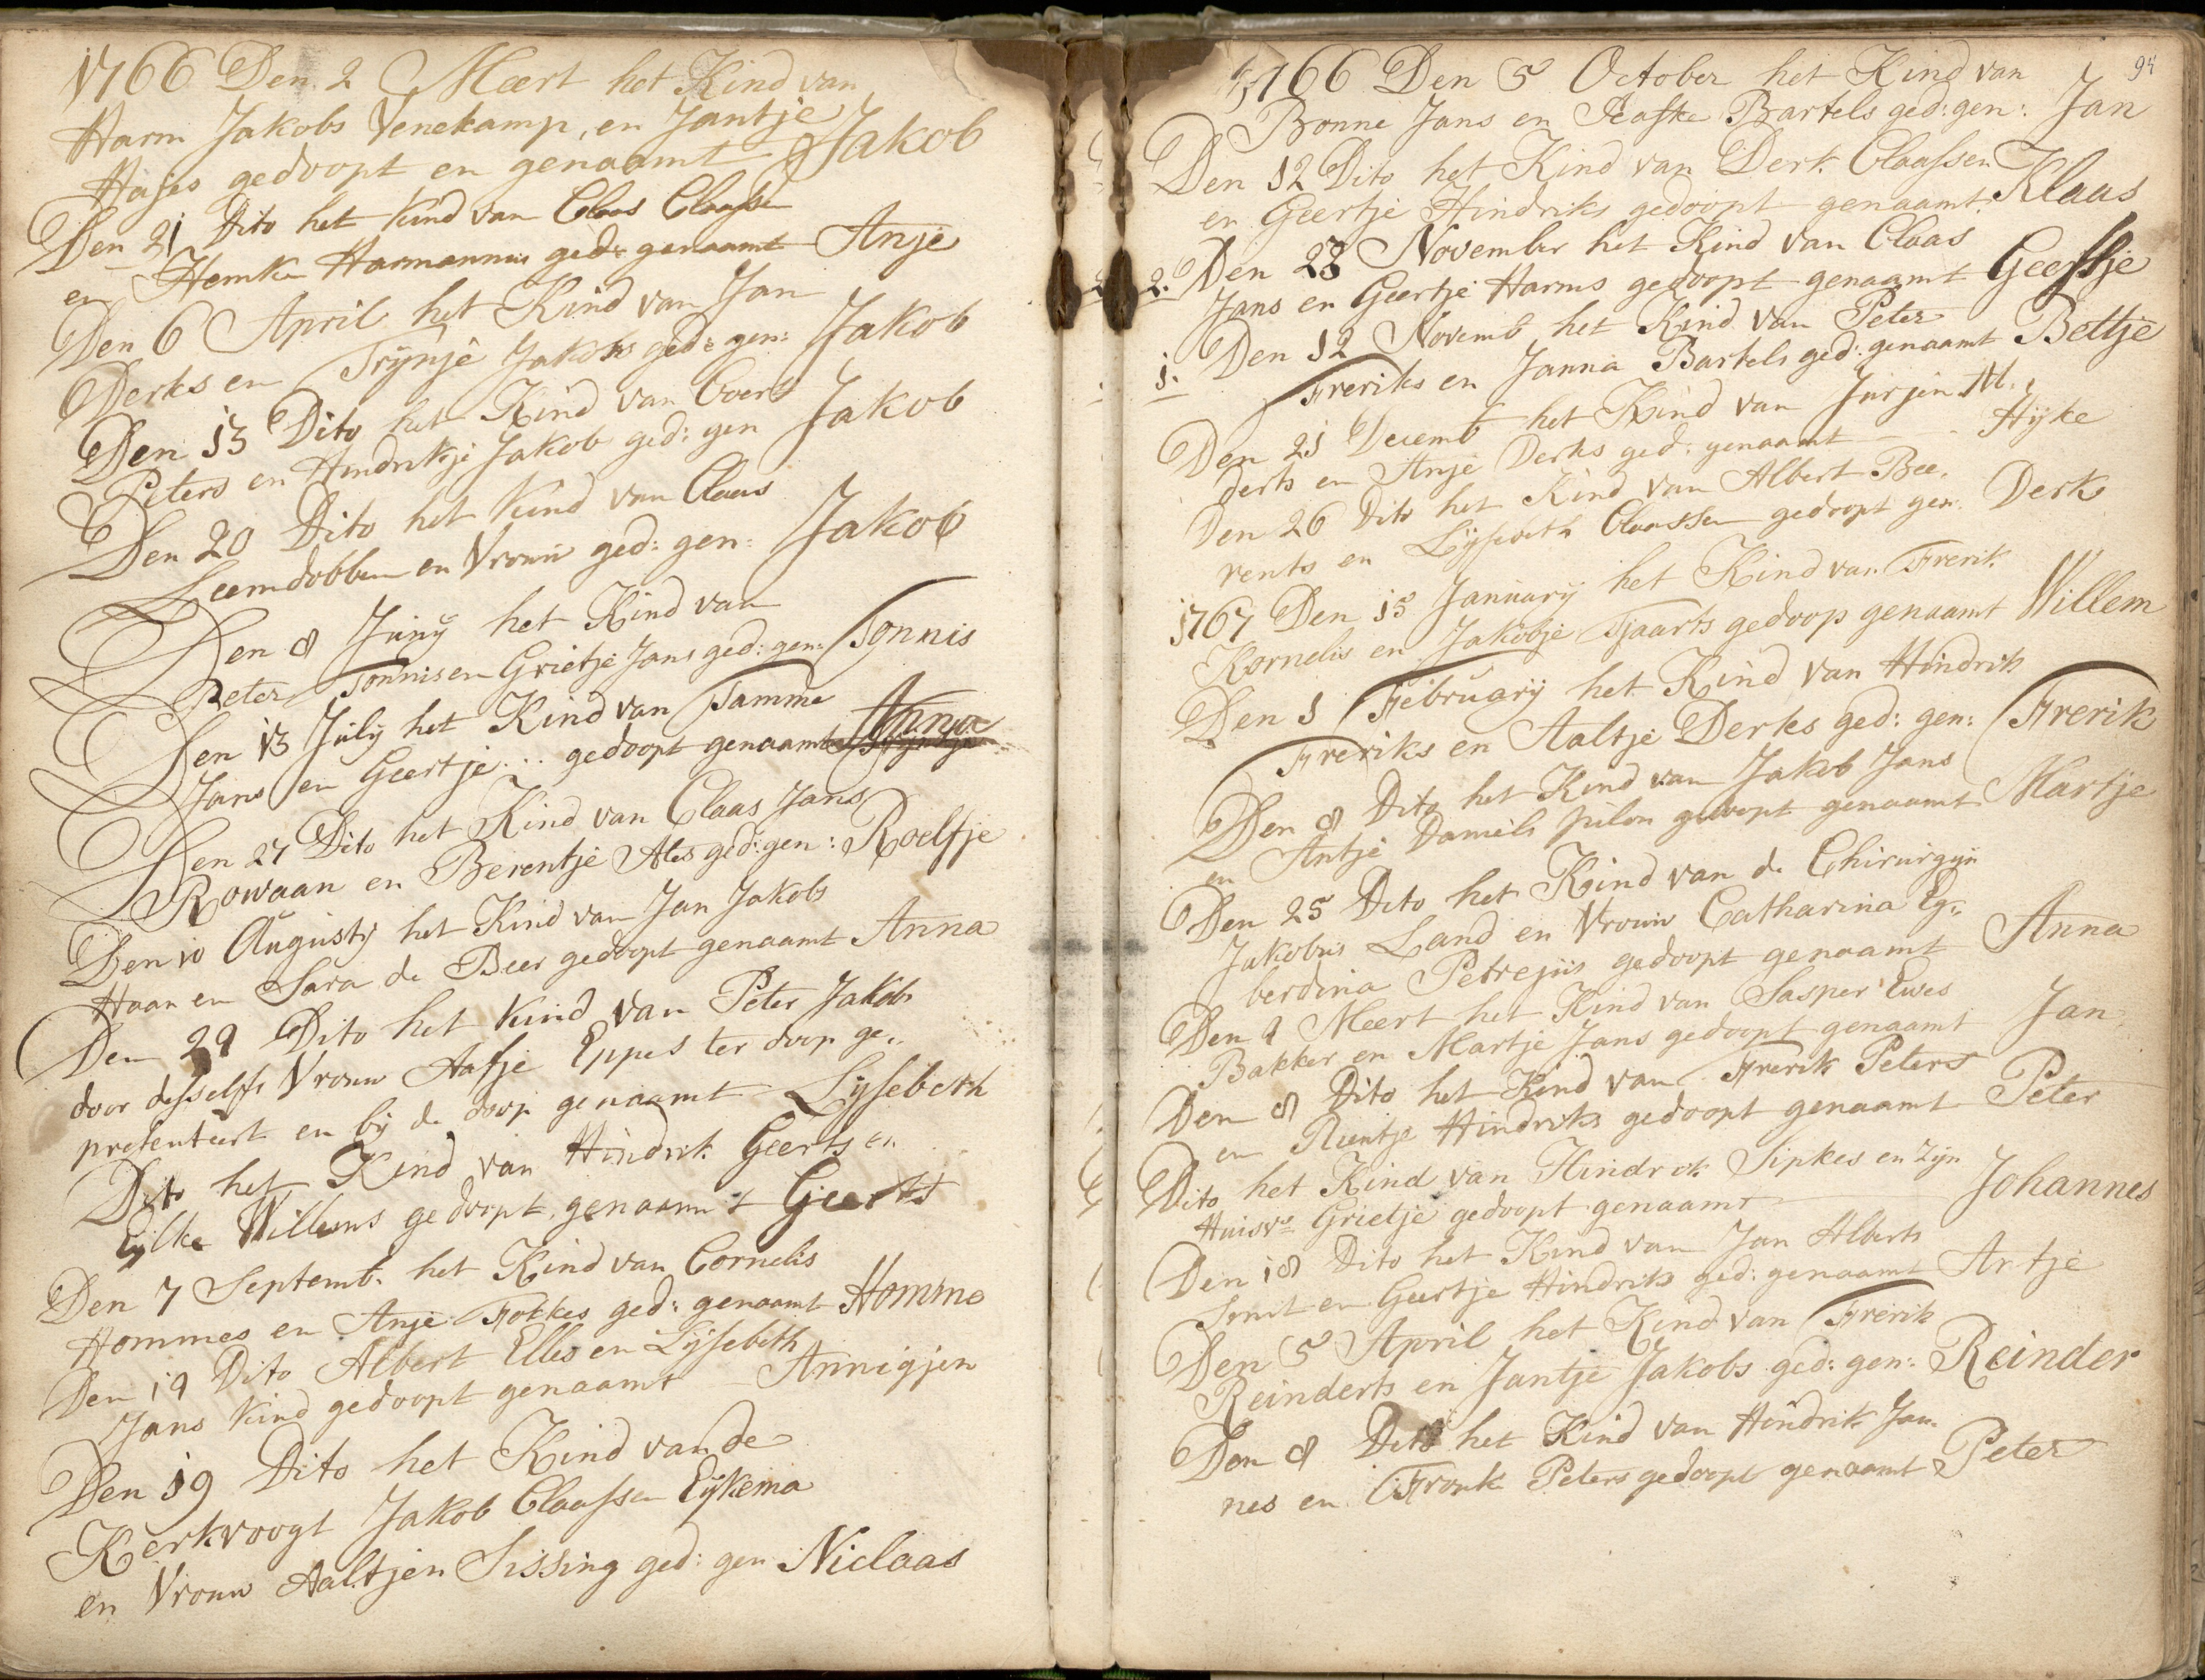 1766 Den 2 Mært het Kind van
Harm Jakobs Venekamp, en Jantje
Hajes gedoopt en genaamt Jakob
Den 21 Dito het Kind van Claas Claassen
en Hemke Harmannus ged: genaamt Anje
Den 6 April het Kind van Jan
Derks en Trijnje Jakobs ged: gen: Jakob
Den 13 Dito het Kind van Evert
Peters en Hindrikje Jakob ged: gen Jakob
Den 20 Dito het Kind van Claas
Leemdobben en Vrouw ged: gen: Jakob
Den 8 Junij het Kind van
Peter Tonnis en Grietje Jans ged: gen: Tonnis
Den 13 Julij het Kind van Tamme
Jans en Geertje ... gedoopt genaamt Anna
Den 27 Dito het Kind van Claas Jans
Rowaan en Berentje Ates ged: gen: Roelfje
Den 10 Augustij het Kind van Jan Jakobs
Haan en Sara de Beer gedoopt genaamt Anna
Den 29 Dito het Kind van Peter Jakobs
door desselfs Vrouw Aafje Eppes ter doop ge„
presenteert en bij de doop genaamt Lijsebeth
Dito het Kind van Hindrik Geerts en
Eijlke Willems gedoopt genaamt Geert
Den 7 Septemb. het Kind van Cornelis
Hommes en Anje Fokkes ged: genaamt Homme
Den 19 Dito Albert Elles en Lijsebeth
Jans Kind gedoopt genaamt Annigjen
Den 19 Dito het Kind van de
Kerkvoogt Jakob Claassen Eijkema
en Vrouw Aaltjen Sissing ged: gen Niclaas
94
1766 Den 5 October het Kind van
Bonne Jans en Bartels ged: gen: Jan
Den 12 Dito het Kind van Derk Claassen
en Geertje Hindriks gedoopt genaamt Klaas
2. Den 23 November het Kind van Claas
Jans en Geertje Harms gedoopt genaamt Geertje
1. Den 12 Novemb het Kind van Peter
Freriks en Janna Bartels ged: genaamt Beltje
Den 21 Decemb het Kind van Jurjen M.
derts en Anje Derks ged: genaamt - - Hijke
Den 26 Dito het Kind van Albert Bee„
rents en Lijsebeth Claassen gedoopt gen. Derk
1767 Den 15 Januarij het Kind van Frerik
Kornelis en Jakobje Tjaarts gedoop genaamt Willem
Den 1 Februarij het Kind van Hindrik
Freriks en Aaltje Derks ged: gen: Frerik
Den 8 Dito het Kind van Jakob Jans
en Antje Daniels gedoopt genaamt Martje
Den 25 Dito het Kind van de Chirurgijn
Jakobus Land en Vrouw Catharina Eg„
berdina Petrejus gedoopt genaamt Anna
Den 1 Meert het Kind van Jasper Ewes
Bakker en Martje Jans gedoopt genaamt Jan
Den 8 Dito het Kind van Frerik Peters
en Hindriks gedoopt genaamt Peter
Dito het Kind van Hindrik Sipkes en zijn
Huisvr Grietje gedoopt genaamt Johannes
Den 18 Dito het Kind van Jan Alberts
Smit en Geertje Hindriks ged: genaamt Antje
Den 5 April het Kind van Frerik
Reinderts en Jantje Jakobs ged: gen: Reinder
Den 8 Dito het Kind van Hindrik Jan„
nes en Frouk Peters gedoopt genaamt Peter